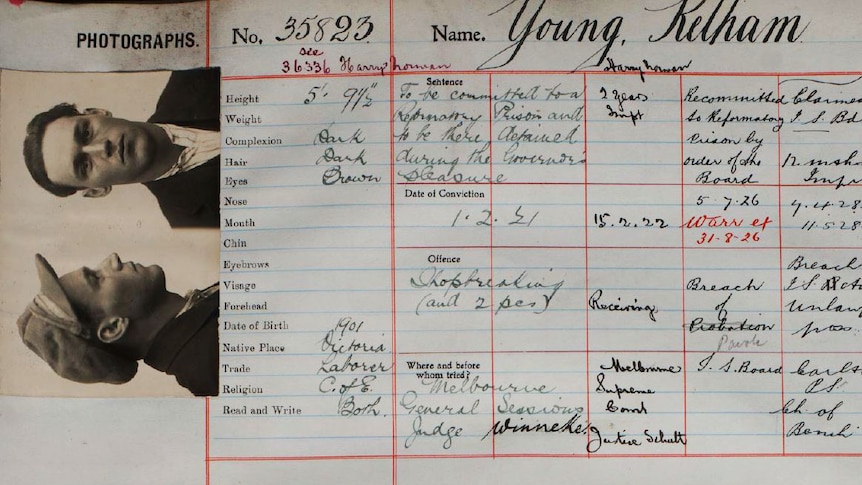 PHOTOGRAPHS.
No. 35823
Name. Young, Kelham
see
36336 Harry Norman
Harry Norman
Height 5'. 9½"
Weight
Complexion Dark
Hair Dark
Eyes Brown
Nose
Mouth
Chin
Eyebrows
Visage
Forehead
Date of Birth 1901
Native Place Victoria
Trade Laborer
Religion C. of E.
Read and Write Both.
Sentence
To be committed to a
Reformatory Prison and
to be there detained
during the Governors
pleasure
Date of Conviction
1. 2. 21
Offence
Shopbreaking
(and 2 pcs)
Where and before
whom tried?
Melbourne
General Sessions
Judge Winneke.
2 years
Impt
15.2.22
Receiving
Melbourne
Supreme
Court
Justice Schutt
Recommitted
to Reformatory
Prison by
order of the
Board
5.7.26
Warr ex
31-8-26
Breach
of
Probation
Parole
I. S. Board
I. S. Bd
12 mths
11.5.28
Breach
I.S.
P.S.
Ch. of
Bench